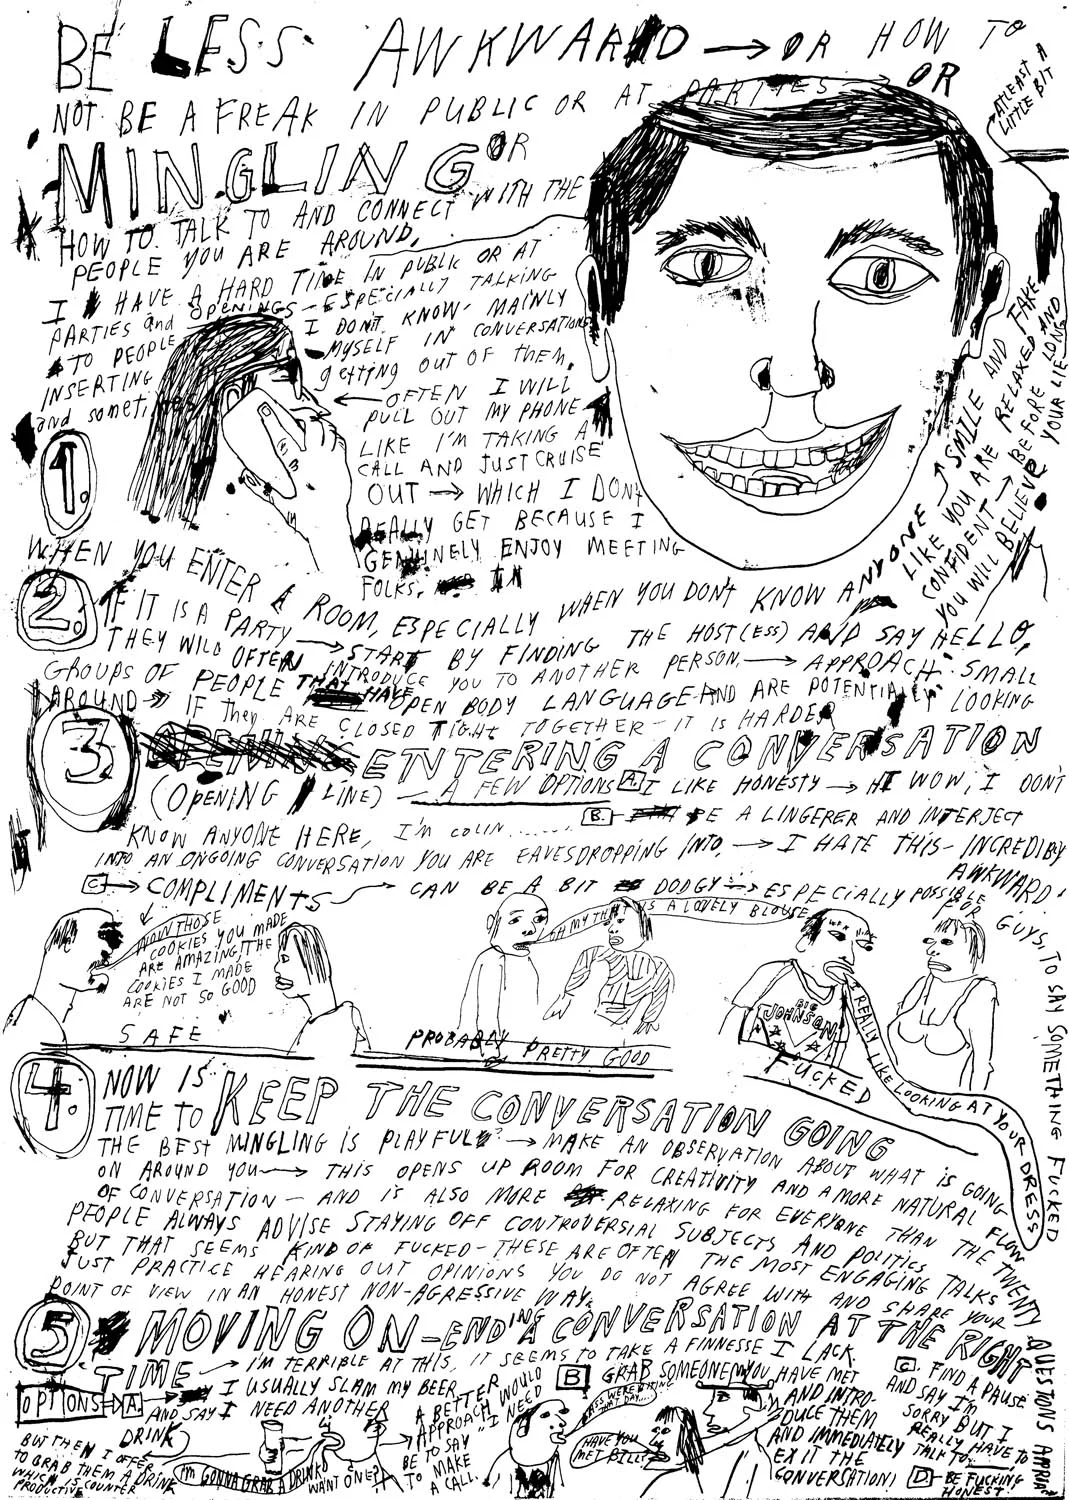 BE LESS AWKWARD → OR HOW TO
NOT BE A FREAK IN PUBLIC OR AT PARTIES OR
ATLEAST A
LITTLE BIT
MINGLING OR
HOW TO TALK TO AND CONNECT WITH THE
PEOPLE YOU ARE AROUND.
I HAVE A HARD TIME IN PUBLIC OR AT
PARTIES and OPENINGS - ESPECIALLY TALKING
TO PEOPLE I DON'T KNOW - MAINLY
INSERTING MYSELF IN CONVERSATIONS
and sometimes getting OUT OF THEM.
← OFTEN I WILL
PULL OUT MY PHONE
LIKE I'M TAKING A
CALL AND JUST CRUISE
OUT → WHICH I DON'T
REALLY GET BECAUSE I
GENUINELY ENJOY MEETING
FOLKS.
1.
WHEN YOU ENTER A ROOM, ESPECIALLY WHEN YOU DON'T KNOW ANYONE → SMILE AND
LIKE YOU ARE RELAXED AND
CONFIDENT → BEFORE LONG
YOU WILL BELIEVE YOUR LIE
FAKE
2.
IF IT IS A PARTY → START BY FINDING THE HOST(ESS) AND SAY HELLO,
THEY WILL OFTEN INTRODUCE YOU TO ANOTHER PERSON. → APPROACH SMALL
GROUPS OF PEOPLE THAT HAVE OPEN BODY LANGUAGE AND ARE POTENTIALLY LOOKING
AROUND → IF They ARE CLOSED TIGHT TOGETHER - IT IS HARDER
3
ENTERING A CONVERSATION
(OPENING LINE) - A FEW OPTIONS A. I LIKE HONESTY → HI WOW, I DON'T
KNOW ANYONE HERE, I'M COLIN.......
B. BE A LINGERER AND INTERJECT
INTO AN ONGOING CONVERSATION YOU ARE EAVESDROPPING INTO. → I HATE THIS - INCREDIBLY
AWKWARD.
C → COMPLIMENTS CAN BE A BIT DODGY → ESPECIALLY POSSIBLE
FOR GUYS, TO SAY SOMETHING FUCKED
THOSE
COOKIES YOU MADE
ARE AMAZING, THE
COOKIES I MADE
ARE NOT SO GOOD
SAFE
OH MY THAT IS A LOVELY BLOUSE
PROBABLY PRETTY GOOD
BIG
JOHNSON
I REALLY LIKE LOOKING AT YOUR DRESS
FUCKED
4.
NOW IS
TIME TO KEEP THE CONVERSATION GOING
THE BEST MINGLING IS PLAYFUL → MAKE AN OBSERVATION ABOUT WHAT IS GOING
ON AROUND YOU → THIS OPENS UP ROOM FOR CREATIVITY AND A MORE NATURAL FLOW
OF CONVERSATION - AND IS ALSO MORE RELAXING FOR EVERYONE THAN THE TWENTY QUESTIONS
PEOPLE ALWAYS ADVISE STAYING OFF CONTROVERSIAL SUBJECTS AND POLITICS
BUT THAT SEEMS KIND OF FUCKED - THESE ARE OFTEN THE MOST ENGAGING TALKS
JUST PRACTICE HEARING OUT OPINIONS YOU DO NOT AGREE WITH AND SHARE YOUR
POINT OF VIEW IN AN HONEST NON-AGRESSIVE WAY.
5
MOVING ON - ENDING A CONVERSATION AT THE RIGHT
TIME → I'M TERRIBLE AT THIS, IT SEEMS TO TAKE A FINNESSE I LACK.
OPTIONS A. I USUALLY SLAM MY BEER
AND SAY I NEED ANOTHER
DRINK
BUT THEN I OFFER
TO GRAB THEM A DRINK
WHICH IS COUNTER
PRODUCTIVE
I'M GONNA GRAB A DRINK
WANT ONE?
A BETTER
APPROACH WOULD
BE TO SAY "I NEED
TO MAKE
A CALL.
B GRAB SOMEONE YOU HAVE MET
AND INTRO-
DUCE THEM
AND IMMEDIATELY
EXIT THE
CONVERSATION!
HAVE YOU
MET BILL?
C. FIND A PAUSE
AND SAY I'M
SORRY BUT I
REALLY HAVE TO
TALK TO
D - BE FUCKING
HONEST.